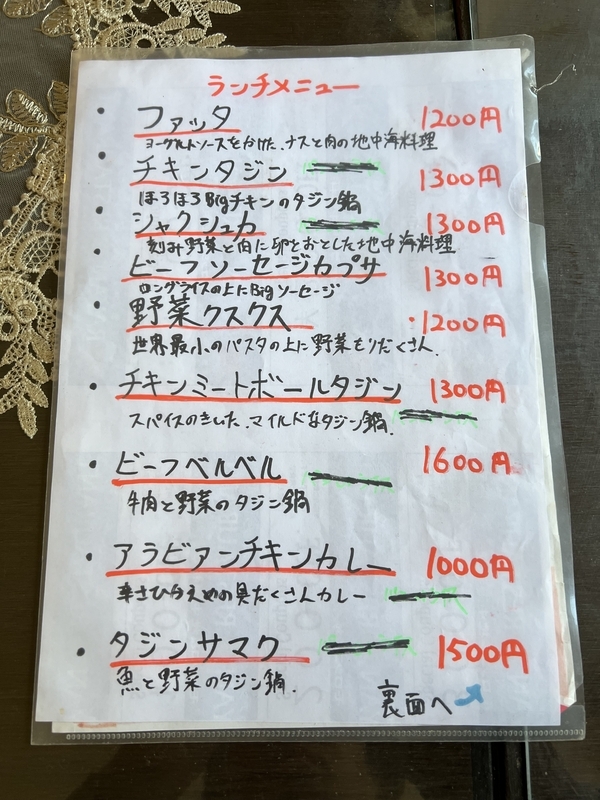 ランチメニュー
ファッタ 1200円
ヨーグルトソースをかけた、ナスと肉の地中海料理
チキンタジン 1300円
ほろほろBigチキンのタジン鍋
シャクシュカ 1300円
刻み野菜と肉に卵をおとした地中海料理
ビーフソーセージカプサ 1300円
ロングライスの上にBigソーセージ
野菜クスクス 1200円
世界最小のパスタの上に野菜もりだくさん.
チキンミートボールタジン 1300円
スパイスのきいた、マイルドなタジン鍋.
ビーフベルベル 1600円
牛肉と野菜のタジン鍋
アラビアンチキンカレー 1000円
辛さひかえめの具だくさんカレー
タジンサマク 1500円
魚と野菜のタジン鍋.
裏面へ